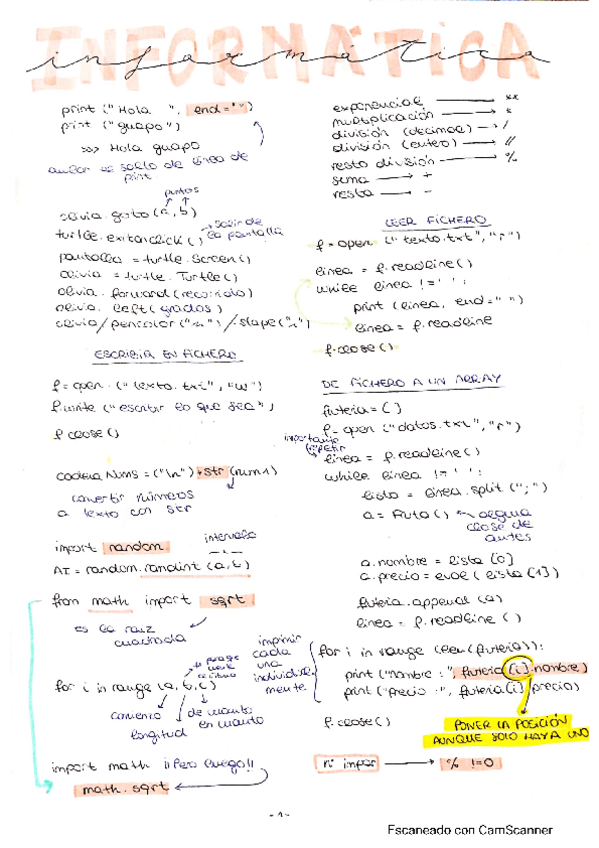 INFORMÁTICA
informática
print ("Hola ", end="")
print ("guapo")
>>> Hola guapo
anular el salto de línea de
print
puntos
olivia.goto(a,b)
turtle.exitonclick() → salir de
la pantalla
pantalla = turtle.Screen()
olivia = turtle.Turtle()
olivia.forward(recorrido)
olivia.left(grados)
olivia/pencolor("~")/.shape("~")
ESCRIBIR EN FICHERO
f=open.("texto.txt","w")
f.write("escribir lo que sea",
f close()
cadena Nums = ("\n")+str(num1)
convertir números
a texto con str
intervalo
import random
AI = random.randint(a,b)
from math import sqrt
es la raiz
cuadrada
for i in range (a,b,c)
comienzo
longitud
de cuanto
en cuanto
import math ¡¡Pero luego!!
math.sqrt
exponencial → **
multiplicación → *
división (decimal) → /
división (entero) → //
resto división → %
suma → +
resta → -
LEER FICHERO
f=open ("texto.txt","r")
linea = f.readline()
while linea !=' ':
print (linea, end=" ")
linea = f.readline
f.close()
DE FICHERO A UN ARRAY
fruteria=[]
f=open ("datos.txt","r")
importante
repetir
linea = f.readline()
while linea !=' ':
lista = linea.split(";")
a = Fruta() → alguna
clase de
antes
a.nombre = lista [0]
a.precio = eval(lista[1])
fruteria.append(a)
linea = f.readline()
imprimir
cada
una
individual
mente
for i in range (len(fruteria)):
print ("nombre:", fruteria[i].nombre)
print ("precio:", fruteria[i].precio)
f.close()
PONER LA POSICIÓN
AUNQUE SOLO HAYA UNO
nº impar → % !=0
-1-
Escaneado con CamScanner